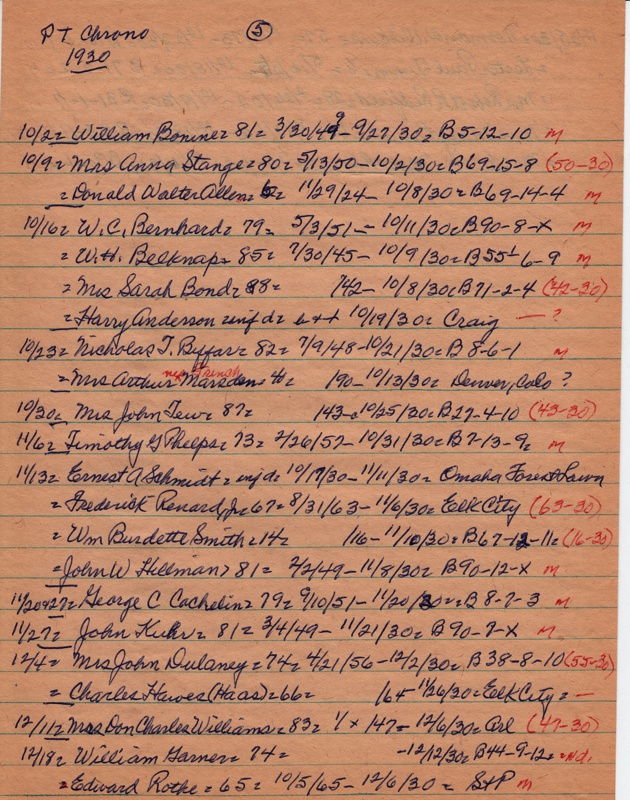 PT Chrono ⑤
1930
10/2 = William Bonine = 81 = 3/30/49 - 9/27/30 = B5-12-10 m
10/9 = Mrs Anna Stange = 80 = 5/13/50 - 10/2/30 = B69-15-8 (50-30)
= Donald Walter Allen = 5 = 11/29/24 - 10/8/30 = B69-14-4 m
10/16 = W.C. Bernhard = 79 = 5/3/51 - 10/11/30 = B90-8-X m
= W.H. Belknap = 85 = 7/30/45 - 10/9/30 = B55 - 6-9 m
= Mrs Sarah Bond = 88 = 1/42 - 10/8/30 = B71-2-4 (42-30)
= Harry Anderson = inf d = b + d 10/19/30 = Craig — ?
10/23 = Nicholas T. Byfar = 82 = 7/9/48 - 10/21/30 = B8-6-1 m
= Mrs Arthur Marsden = 40 = 1/90 - 10/13/30 = Denver, Colo ?
10/30 = Mrs John Tew = 87 = 1/43 = 10/25/30 = B27-4-10 (43-30)
11/6 = Timothy G Phelps = 73 = 2/26/57 - 10/31/30 = B7-13-9 = m
11/13 = Ernest A Schmidt = inf d = 10/17/30 - 11/11/30 = Omaha Forest Lawn
= Frederick Renard, Jr = 67 = 8/31/63 - 11/6/30 = Elk City (63-30)
= Wm Burdette Smith = 14 = 1/16 - 11/10/30 = B67-12-11 = (16-30)
= John W Hillman = 81 = 2/2/49 - 11/8/30 = B90-12-X m
11/20+27 = George C Cachelin = 79 = 9/10/51 - 11/20/30 = B8-7-3 m
11/27 = John Kuhr = 81 = 3/4/49 - 11/21/30 = B90-7-X m
12/4 = Mrs John Dulaney = 74 = 4/21/56 - 12/2/30 = B38-8-10 (55-30)
= Charles Hawes (Haas) = 66 = 1/64 - 11/26/30 = Elk City = —
12/11 = Mrs Don Charles Williams = 83 = 1/X 147 = 12/6/30 = Arl (47-30)
12/18 = William Garner = 74 = - 12/12/30 = B44-9-12 = nd.
= Edward Rothe = 65 = 10/5/65 - 12/6/30 = S+P m